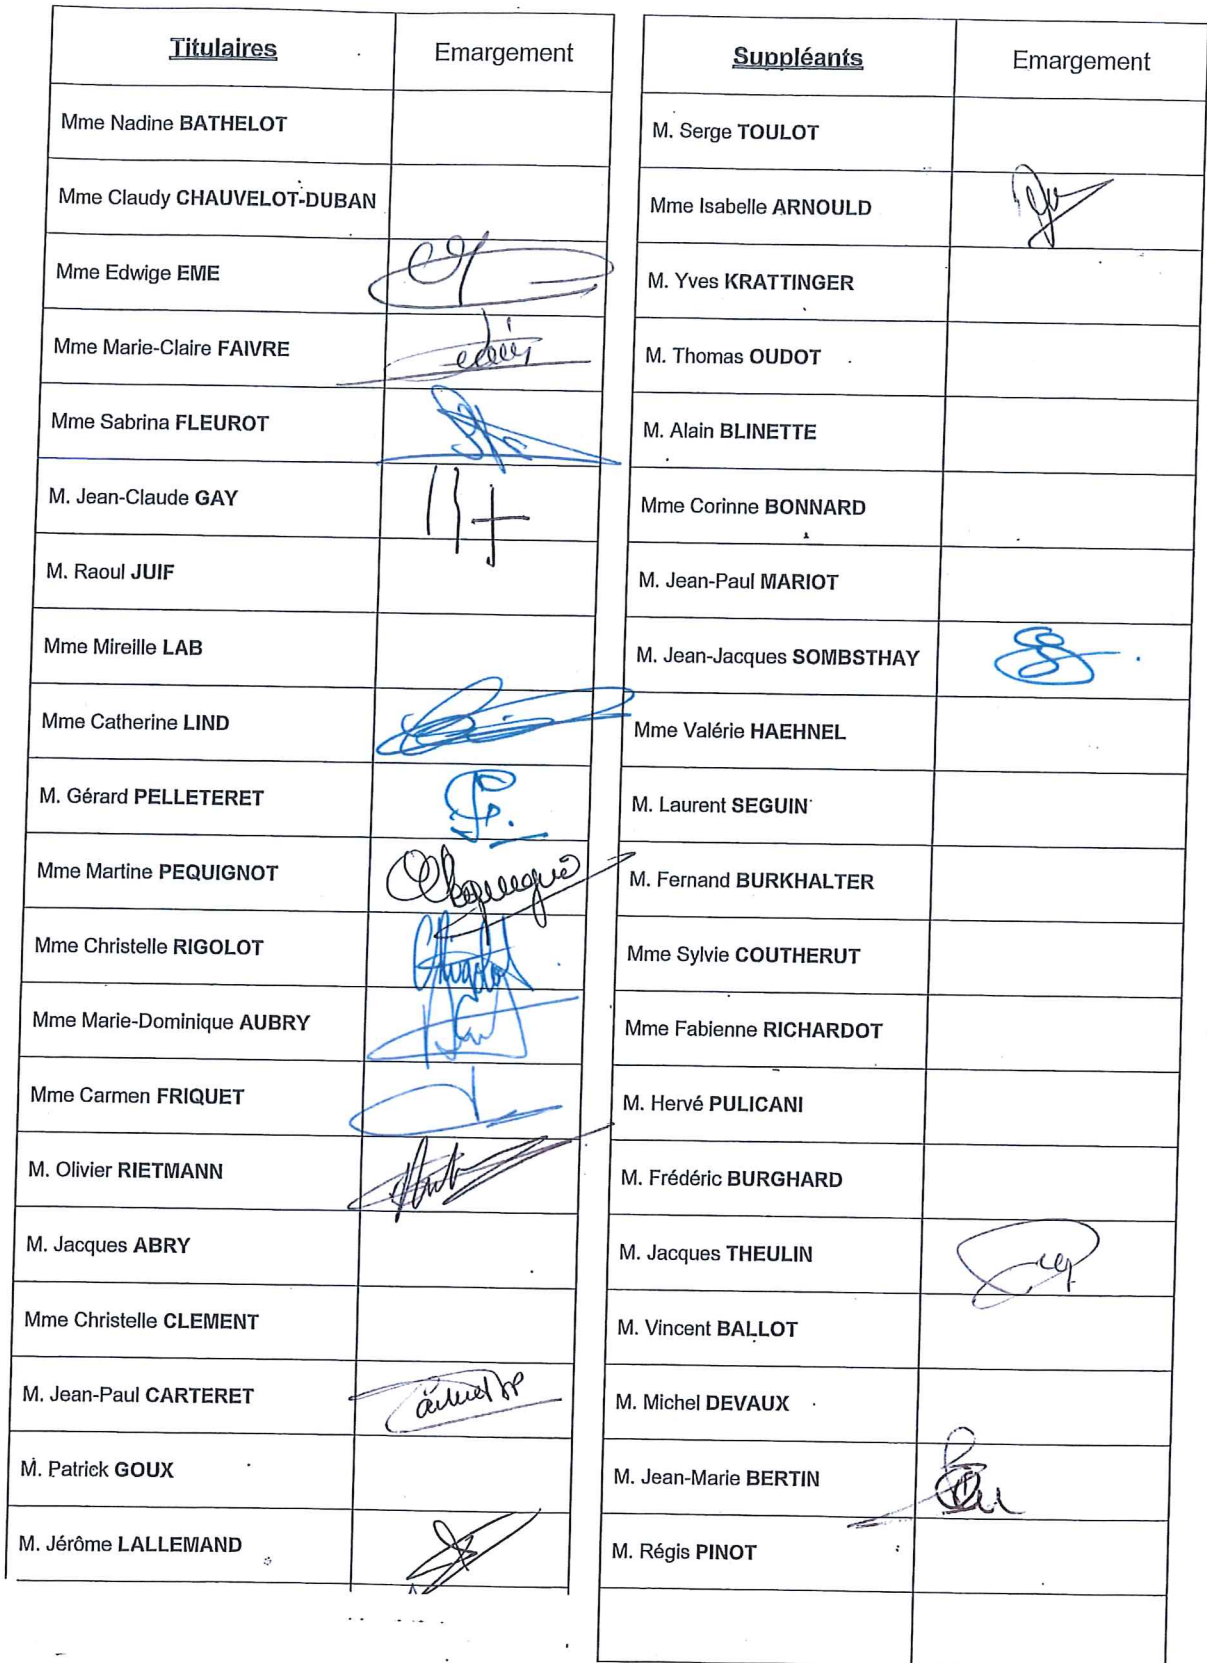 Titulaires Emargement
Mme Nadine BATHELOT
Mme Claudy CHAUVELOT-DUBAN
Mme Edwige EME
Mme Marie-Claire FAIVRE
Mme Sabrina FLEUROT
M. Jean-Claude GAY
M. Raoul JUIF
Mme Mireille LAB
Mme Catherine LIND
M. Gérard PELLETERET
Mme Martine PEQUIGNOT
Mme Christelle RIGOLOT
Mme Marie-Dominique AUBRY
Mme Carmen FRIQUET
M. Olivier RIETMANN
M. Jacques ABRY
Mme Christelle CLEMENT
M. Jean-Paul CARTERET
M. Patrick GOUX
M. Jérôme LALLEMAND
Suppléants Emargement
M. Serge TOULOT
Mme Isabelle ARNOULD
M. Yves KRATTINGER
M. Thomas OUDOT
M. Alain BLINETTE
Mme Corinne BONNARD
M. Jean-Paul MARIOT
M. Jean-Jacques SOMBSTHAY
Mme Valérie HAEHNEL
M. Laurent SEGUIN
M. Fernand BURKHALTER
Mme Sylvie COUTHERUT
Mme Fabienne RICHARDOT
M. Hervé PULICANI
M. Frédéric BURGHARD
M. Jacques THEULIN
M. Vincent BALLOT
M. Michel DEVAUX
M. Jean-Marie BERTIN
M. Régis PINOT